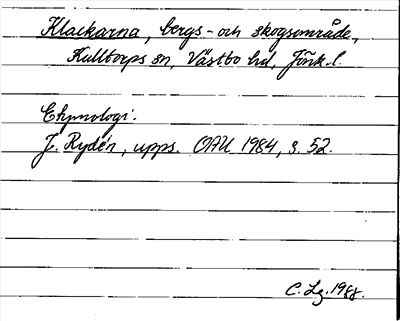 Klackarna, bergs- och skogsområde,
Kulltorps sn, Västbo hd, Jönk. l.
Etymologi.
J. Rydén, upps. OAU 1984, s. 52.
C. Lg. 1988.